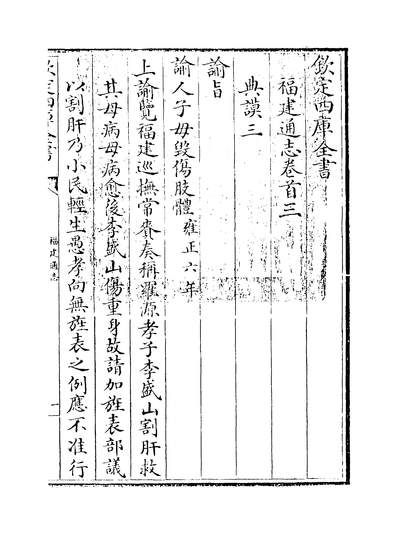 欽定四庫全書
福建通志卷首三
典謨三
諭旨
諭人子毋毀傷肢體雍正六年
上諭覽福建巡撫常賚奏稱羅源孝子李盛山割肝救
其母病母病愈後李盛山傷重身故請加旌表部議
以割肝乃小民輕生愚孝向無旌表之例應不准行
福建通志